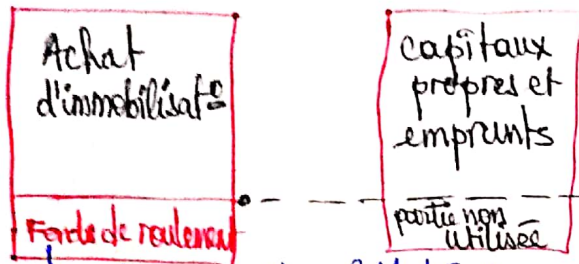 Achat
d'immobilisat°
Fonds de roulement
capitaux
propres et
emprunts
partie non
utilisée